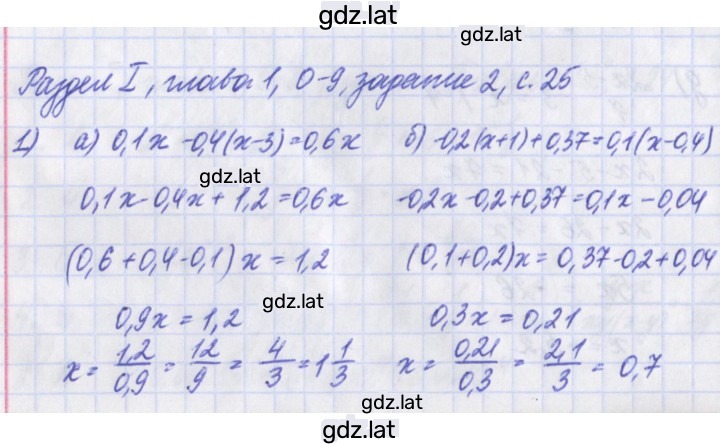 gdz.lat
gdz.lat
Раздел I, глава 1, О-9, задание 2, с. 25
1) а) 0,1x - 0,4(x-3) = 0,6x б) -0,2(x+1) + 0,37 = 0,1(x-0,4)
gdz.lat
0,1x - 0,4x + 1,2 = 0,6x -0,2x - 0,2 + 0,37 = 0,1x - 0,04
(0,6 + 0,4 - 0,1) x = 1,2 (0,1 + 0,2)x = 0,37 - 0,2 + 0,04
gdz.lat
0,9x = 1,2 0,3x = 0,21
x = 1,2/0,9 = 12/9 = 4/3 = 1 1/3 x = 0,21/0,3 = 2,1/3 = 0,7
gdz.lat
gdz.lat